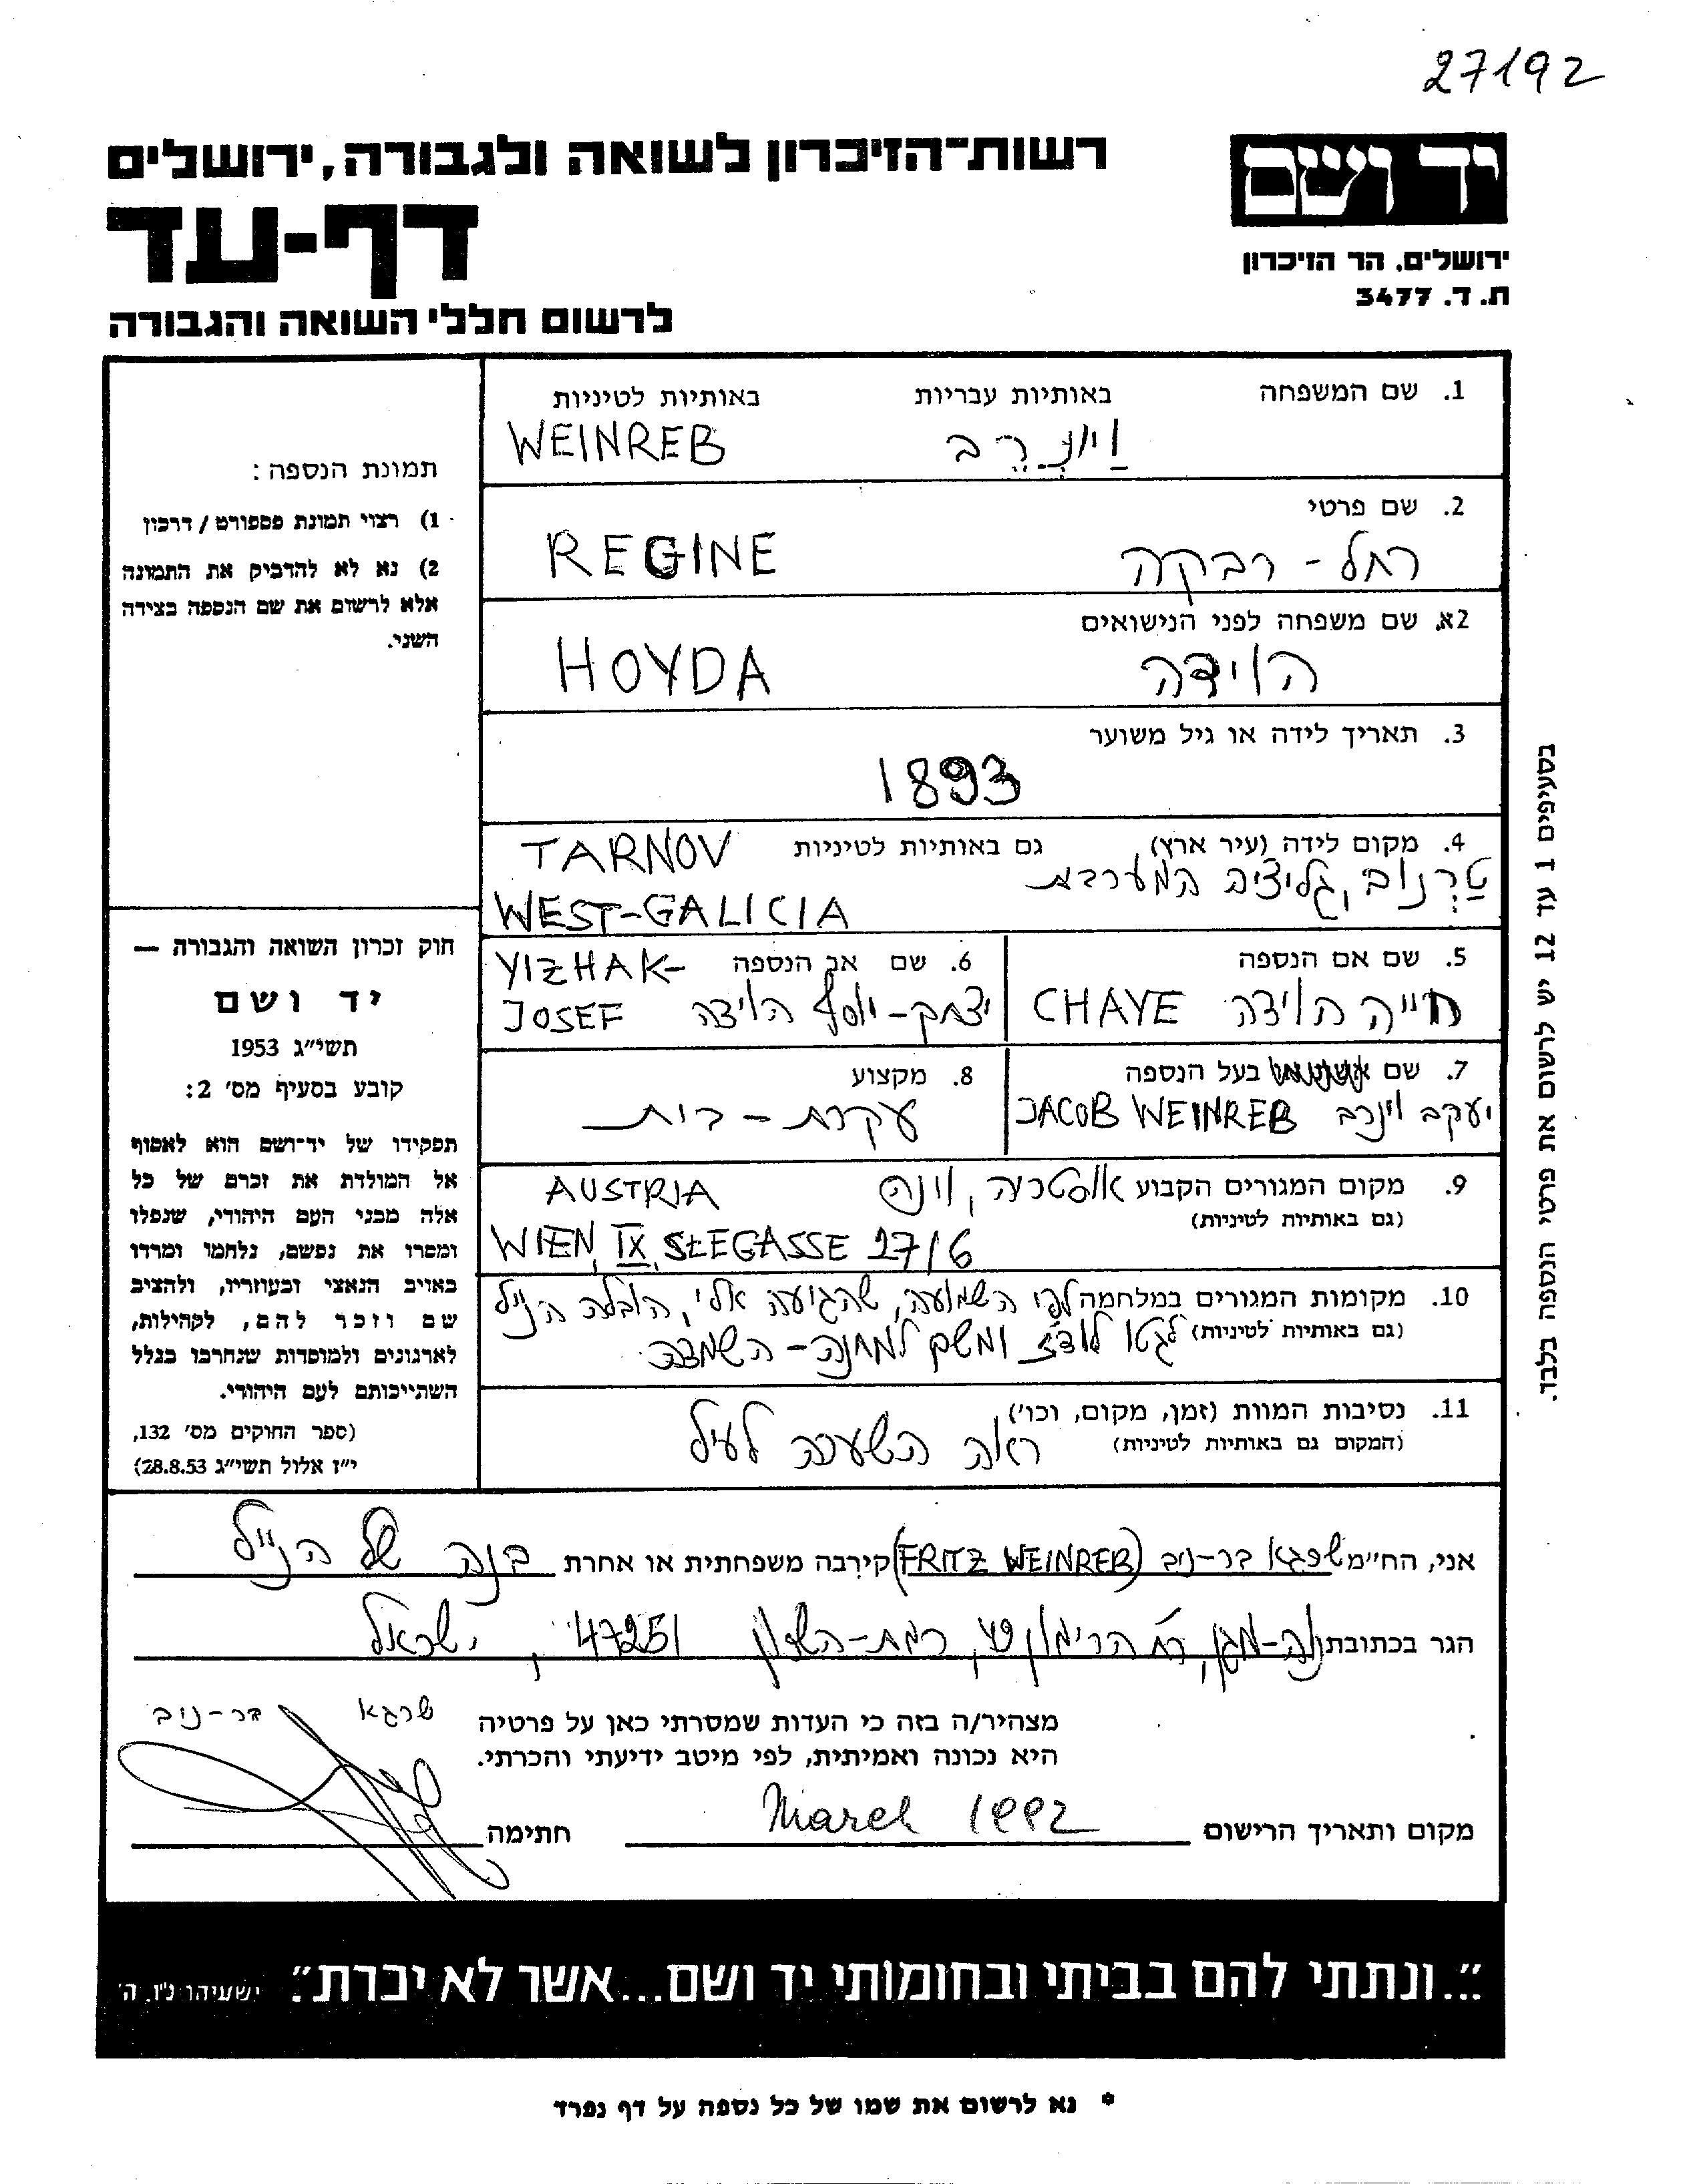 27192
יד ושם
רשות־הזיכרון לשואה ולגבורה, ירושלים
דף-עד
ירושלים, הר הזיכרון
ת. ד. 3477
לרשום חללי השואה והגבורה
תמונת הנספה:
1) רצוי תמונת פספורט / דרכון
2) נא לא להדביק את התמונה
אלא לרשום את שם הנספה בצידה
השני.
1. שם המשפחה באותיות עבריות באותיות לטיניות
וַיְינְרֶב WEINREB
2. שם פרטי
רחל - רבקה REGINE
2א. שם משפחה לפני הנישואים
הוידה HOYDA
3. תאריך לידה או גיל משוער
1893
4. מקום לידה (עיר ארץ) גם באותיות לטיניות TARNOV
טַרְנוֹב, גליציה המערבית
WEST-GALICIA
5. שם אם הנספה
חייה הוידה CHAYE
6. שם אב הנספה YIZHAK-
יצחק - יוסף הוידה JOSEF
7. שם בעל הנספה
יעקב וינרב JACOB WEINREB
8. מקצוע
עקרת - בית
9. מקום המגורים הקבוע אוסטריה, וינה AUSTRIA
(גם באותיות לטיניות)
WIEN, IX, SEEGASSE 27/6
10. מקומות המגורים במלחמה לפי השמועה, שהגיעה אלי, הובלה הנ״ל
(גם באותיות לטיניות) לגטו לודז׳ ומשם למחנה - השמדה.
11. נסיבות המוות (זמן, מקום, וכו׳)
(המקום גם באותיות לטיניות) ראה השערה לעיל
חוק זכרון השואה והגבורה —
יד ושם
תשי״ג 1953
קובע בסעיף מס׳ 2:
תפקידו של יד־ושם הוא לאסוף
אל המולדת את זכרם של כל
אלה מבני העם היהודי, שנפלו
ומסרו את נפשם, נלחמו ומרדו
באויב הנאצי ובעוזריו, ולהציב
שם וזכר להם, לקהילות,
לארגונים ולמוסדות שנחרבו בגלל
השתייכותם לעם היהודי.
(ספר החוקים מס׳ 132,
י״ז אלול תשי״ג 28.8.53)
בסעיפים 1 עד 12 יש לרשום את פרטי הנספה בלבד.
אני, הח״מ שרגא בר-ניב (FRITZ WEINREB) קירבה משפחתית או אחרת בנה של הנ״ל
הגר בכתובת נוה-מגן, רח׳ הרימון, רמת-השרון 47251, ישראל
מצהיר/ה בזה כי העדות שמסרתי כאן על פרטיה
היא נכונה ואמיתית, לפי מיטב ידיעתי והכרתי.
שרגא בר-ניב
מקום ותאריך הרישום March 1992 חתימה
״...ונתתי להם בביתי ובחומותי יד ושם...אשר לא יכרת״. ישעיהו נ״ו, ה׳
* נא לרשום את שמו של כל נספה על דף נפרד